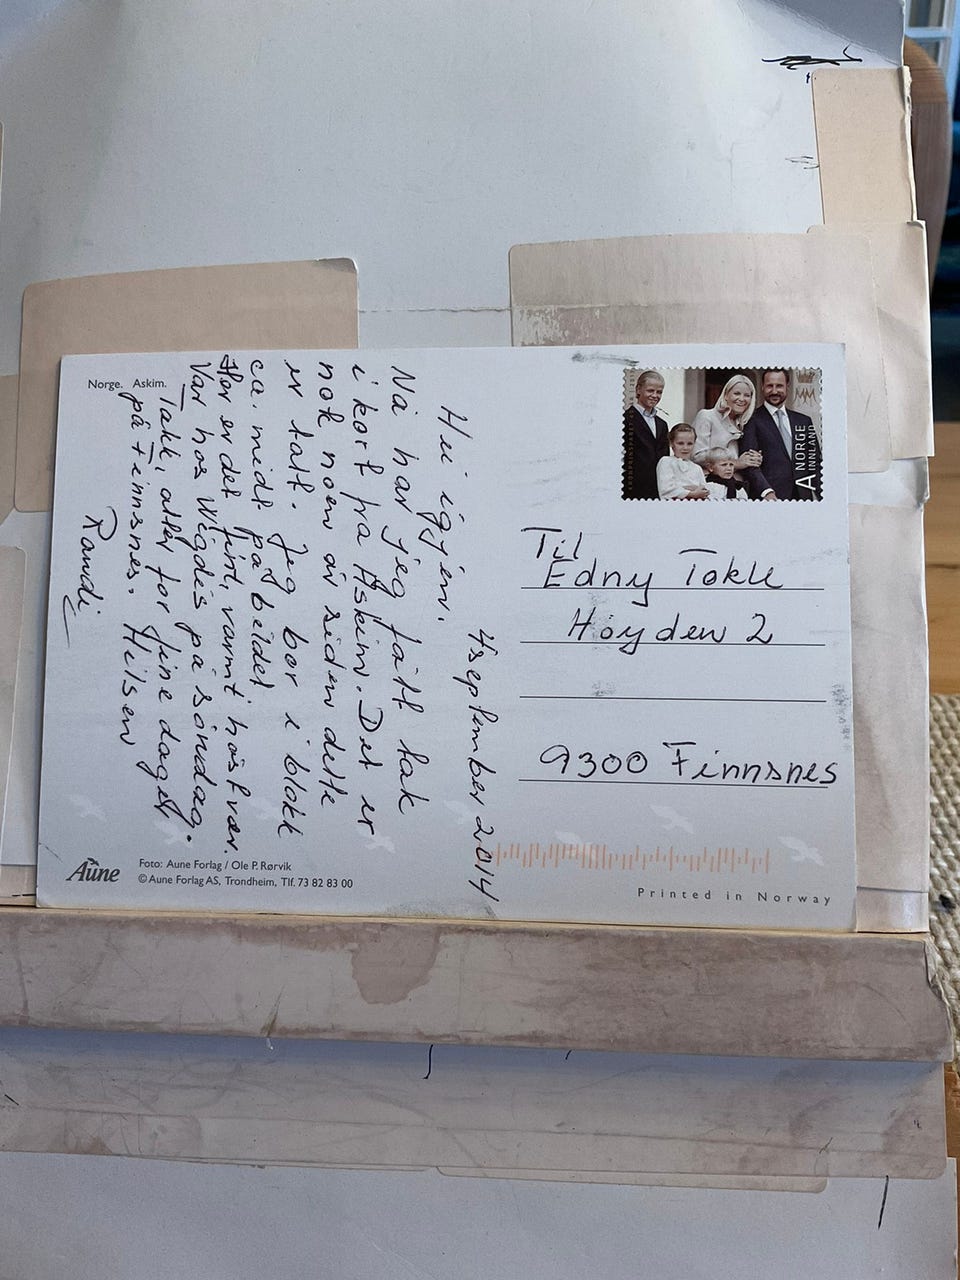 Norge. Askim.
4 september 2014
Hei igjen.
Nå har jeg fått tak
i kort fra Askim. Det er
nok noen år siden dette
er tatt. Jeg bor i blokk
ca. midt på bildet
Her er det fint, varmt høstvær.
Var hos Vigdis på søndag.
Takk, atter for fine dager
på Finnsnes. Hilsen
Randi
Aune
Foto: Aune Forlag / Ole P. Rørvik
© Aune Forlag AS, Trondheim, Tlf. 73 82 83 00
NORGE
A INNLAND
Til
Edny Tokle
Høyden 2
9300 Finnsnes
Printed in Norway